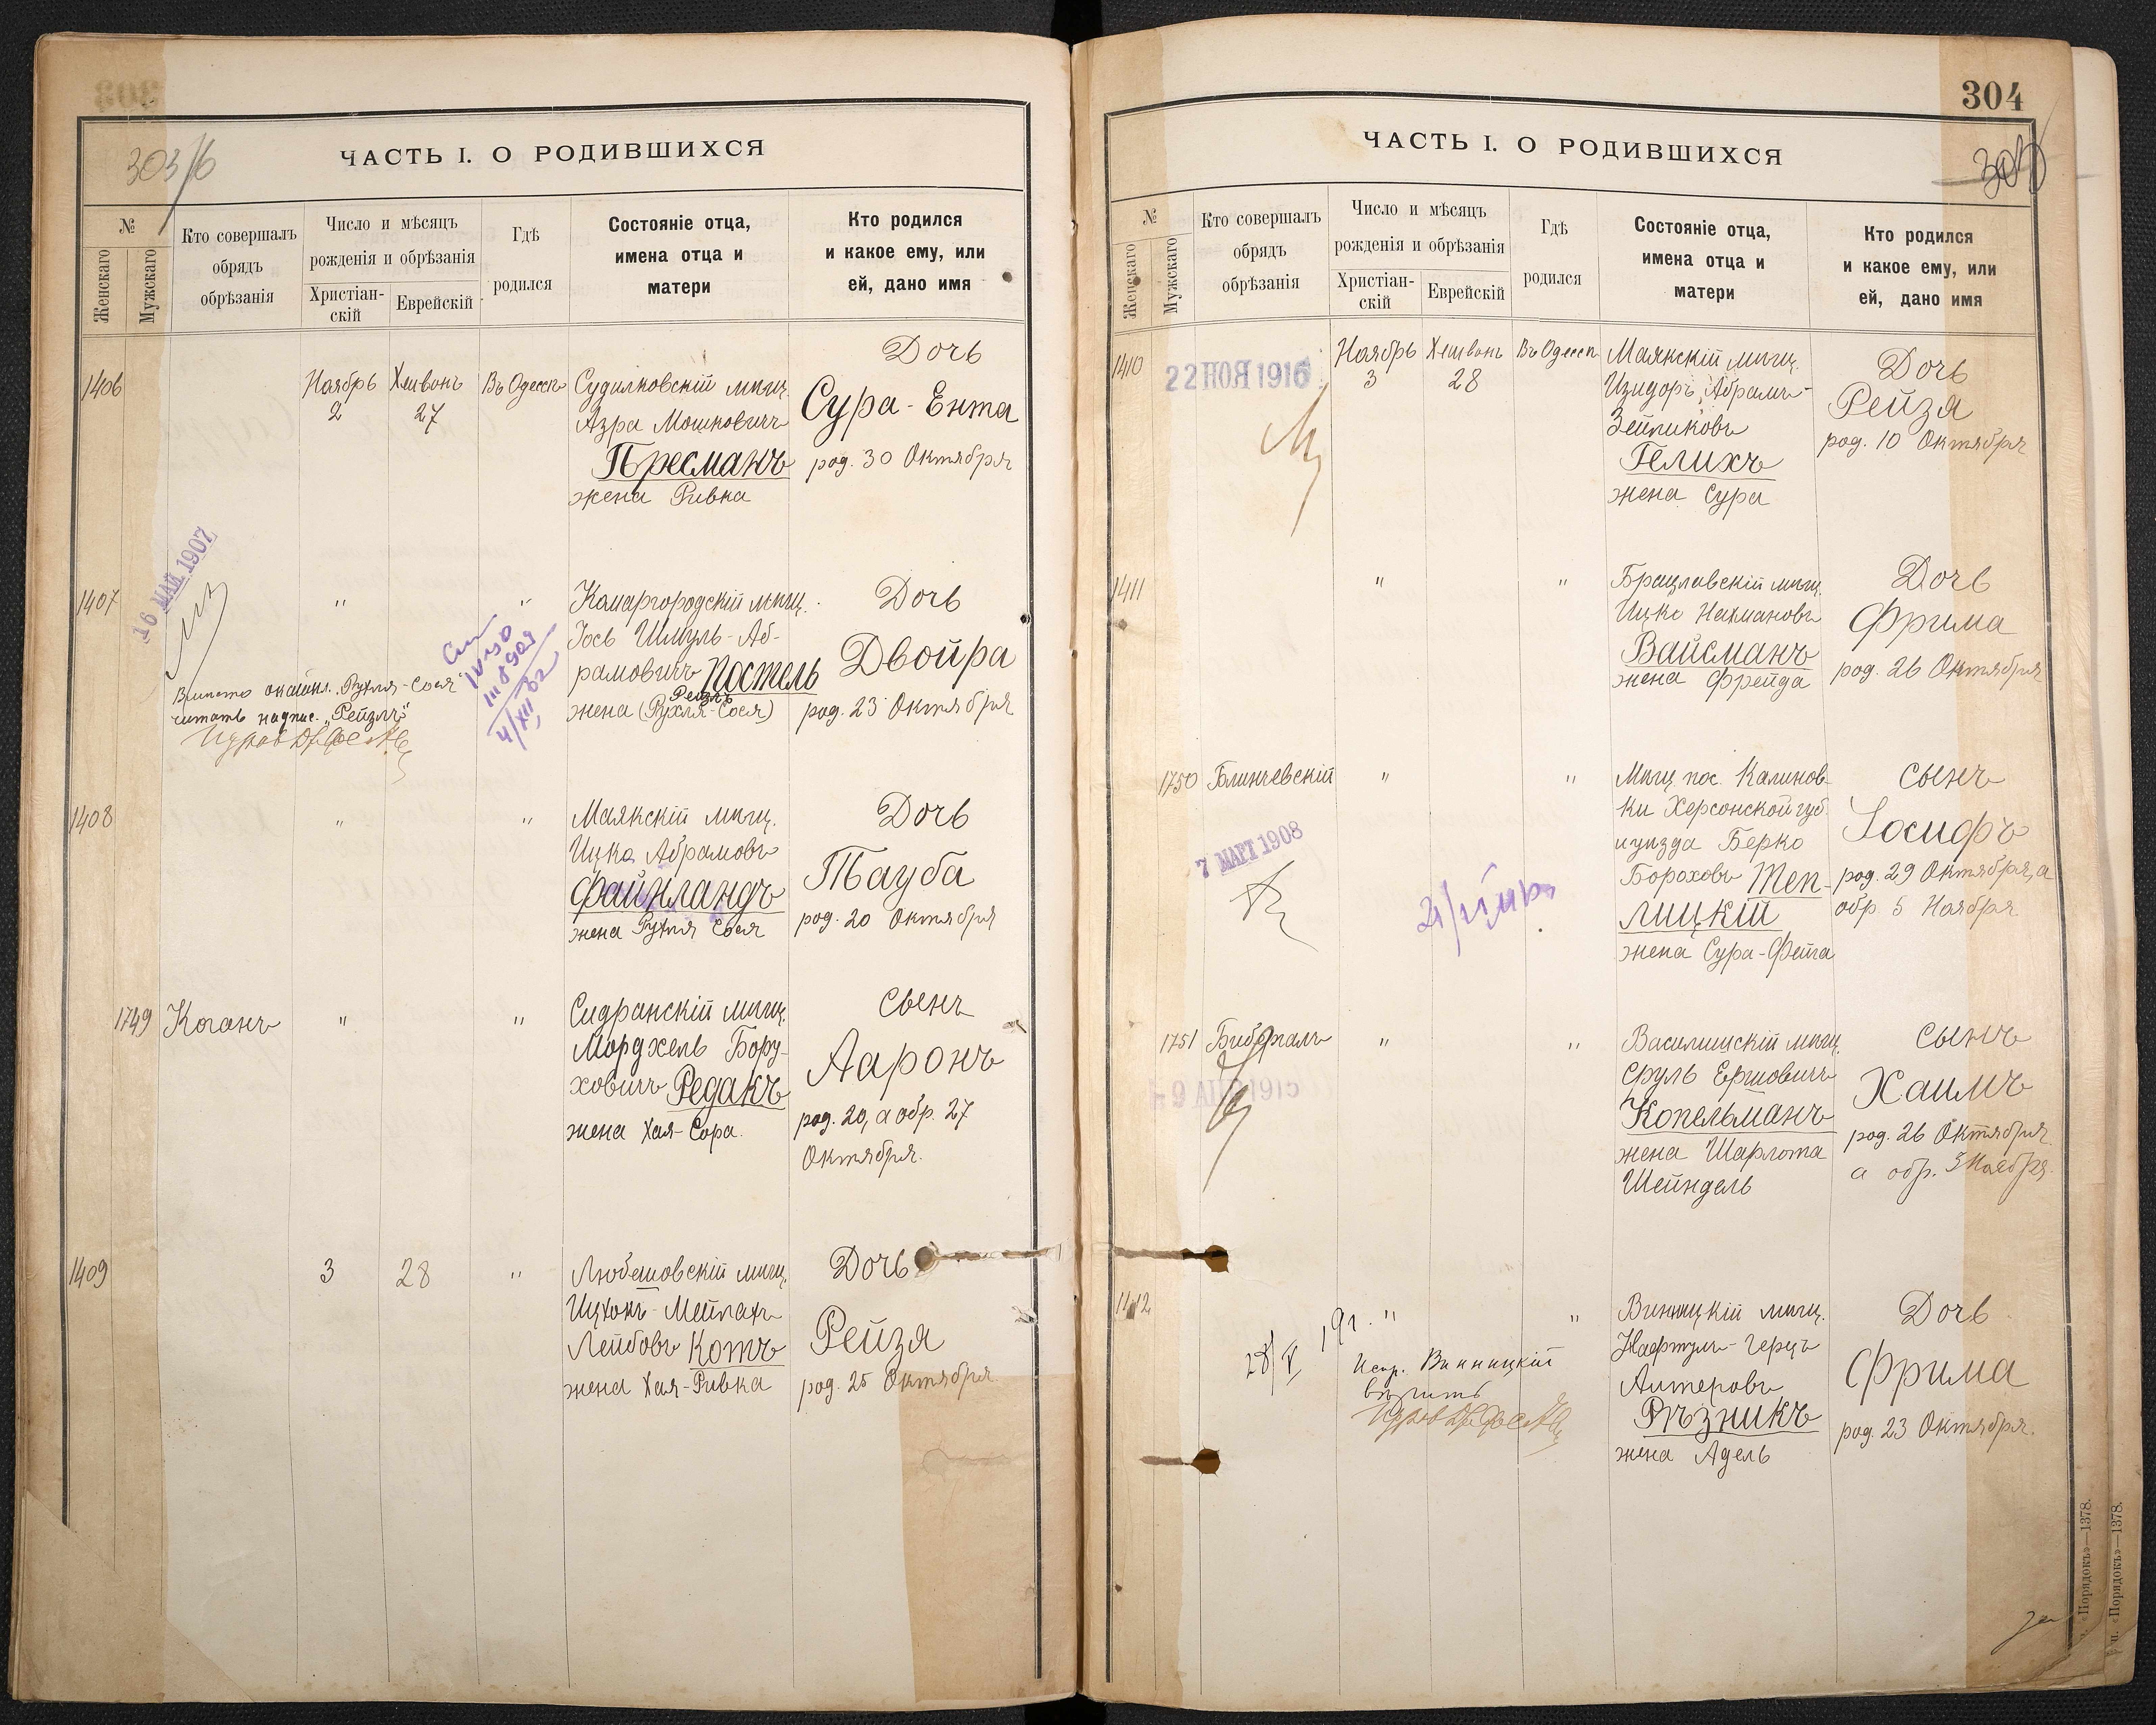 303/б
ЧАСТЬ I. О РОДИВШИХСЯ
№
Женскаго
Мужскаго
Кто совершалъ
обрядъ
обрѣзанія
Число и мѣсяцъ
рожденія и обрѣзанія
Христіан-
скій
Еврейскій
Гдѣ
родился
Состояніе отца,
имена отца и
матери
Кто родился
и какое ему, или
ей, дано имя
1406
Ноябрь
2
Хешвонъ
27
Въ Одессѣ
Судилковскій мѣщ.
Азра Мошковичъ
Пресманъ
жена Ривка
Дочь
Сура-Ента
род. 30 Октября
1407
16 МАЙ 1907
"
"
Комаргородскій мѣщ.
Іось Шмуль-Аб-
рамовичъ Постель
Рейзлъ
жена (Рухля-Сося)
Дочь
Двойра
род. 23 Октября
Вмѣсто "Рухля-Сося"
читать надпис. "Рейзлъ"
1408
"
"
Маякскій мѣщ.
Ицко Абрамовъ
Файнландъ
жена Рухля Сося
Дочь
Тауба
род. 20 Октября
1749
Коганъ
"
"
Сидранскій мѣщ.
Мордхель Бору-
ховичъ Редакъ
жена Хая-Сора
Сынъ
Ааронъ
род. 20, а обр. 27
Октября.
1409
3
28
"
Любешовскій мѣщ.
Ицхокъ-Мейлахъ
Лейбовъ Котъ
жена Хая-Ривка
Дочь
Рейзя
род. 25 Октября
304
ЧАСТЬ I. О РОДИВШИХСЯ
№
Женскаго
Мужскаго
Кто совершалъ
обрядъ
обрѣзанія
Число и мѣсяцъ
рожденія и обрѣзанія
Христіан-
скій
Еврейскій
Гдѣ
родился
Состояніе отца,
имена отца и
матери
Кто родился
и какое ему, или
ей, дано имя
1410
22 НОЯ 1916
Ноябрь
3
Хешвонъ
28
Въ Одессѣ
Маякскій мѣщ.
Изидоръ, Абрамъ-
Зейликовъ
Гелихъ
жена Сура
Дочь
Рейзя
род. 10 Октября
1411
"
"
Брацлавскій мѣщ.
Ицко Нахмановъ
Вайсманъ
жена Фрейда
Дочь
Фрима
род. 26 Октября
1750
Блинчевскій
7 МАРТ 1908
"
"
Мѣщ. пос. Калинов-
ки Херсонской губ.
и уѣзда Берко
Бороховъ Теп-
лицкій
жена Сура-Фейга
Сынъ
Іосифъ
род. 29 Октября, а
обр. 5 Ноября
1751
Бибергалъ
9 АПР 1915
"
"
Василишскій мѣщ.
Сруль Ершовичъ
Копельманъ
жена Шарлота
Шейндель
Сынъ
Хаимъ
род. 26 Октября
а обр. 3 Ноября.
1412
"
"
Испр. Винницкій
вѣрить
Винницкій мѣщ.
Нафтуль-Герцъ
Алтеровъ
Рѣзникъ
жена Адель
Дочь
Фрима
род. 23 Октября.
«Порядокъ»—1378.
«Порядокъ»—1378.